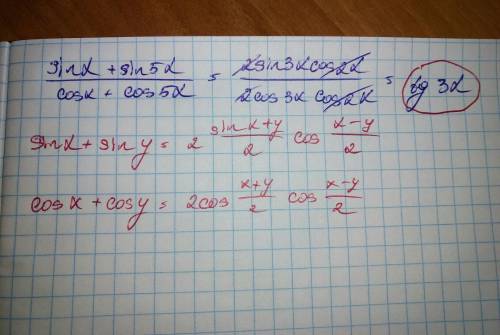 (sinα + sin5α)/(cosα + cos5α) = (2sin3α cos2α)/(2cos3α cos2α) = tg 3α
sinx + siny = 2 (sin x+y)/2 cos (x-y)/2
cosx + cosy = 2cos (x+y)/2 cos (x-y)/2